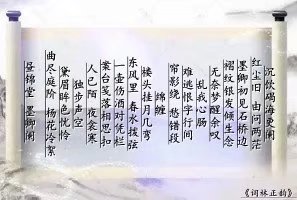 沉饮竭海更阑
红尘旧 由问两茫
墨卿初见石桥边
褶纹银发倾生念
无奈梦醒余叹
难逃恨字行间
乱我心肠
帘影绕 愁错段
绵缠
楼头挂月几弯
东风里 春水拨弦
一壶伤酒对凭栏
案台笺落相思扣
人已陌 夜衾寒
独步声空
黛眉眸色恍怜
曲尽庭阶 杨花冷絮
昼锦堂 墨卿阑
《词林正韵》